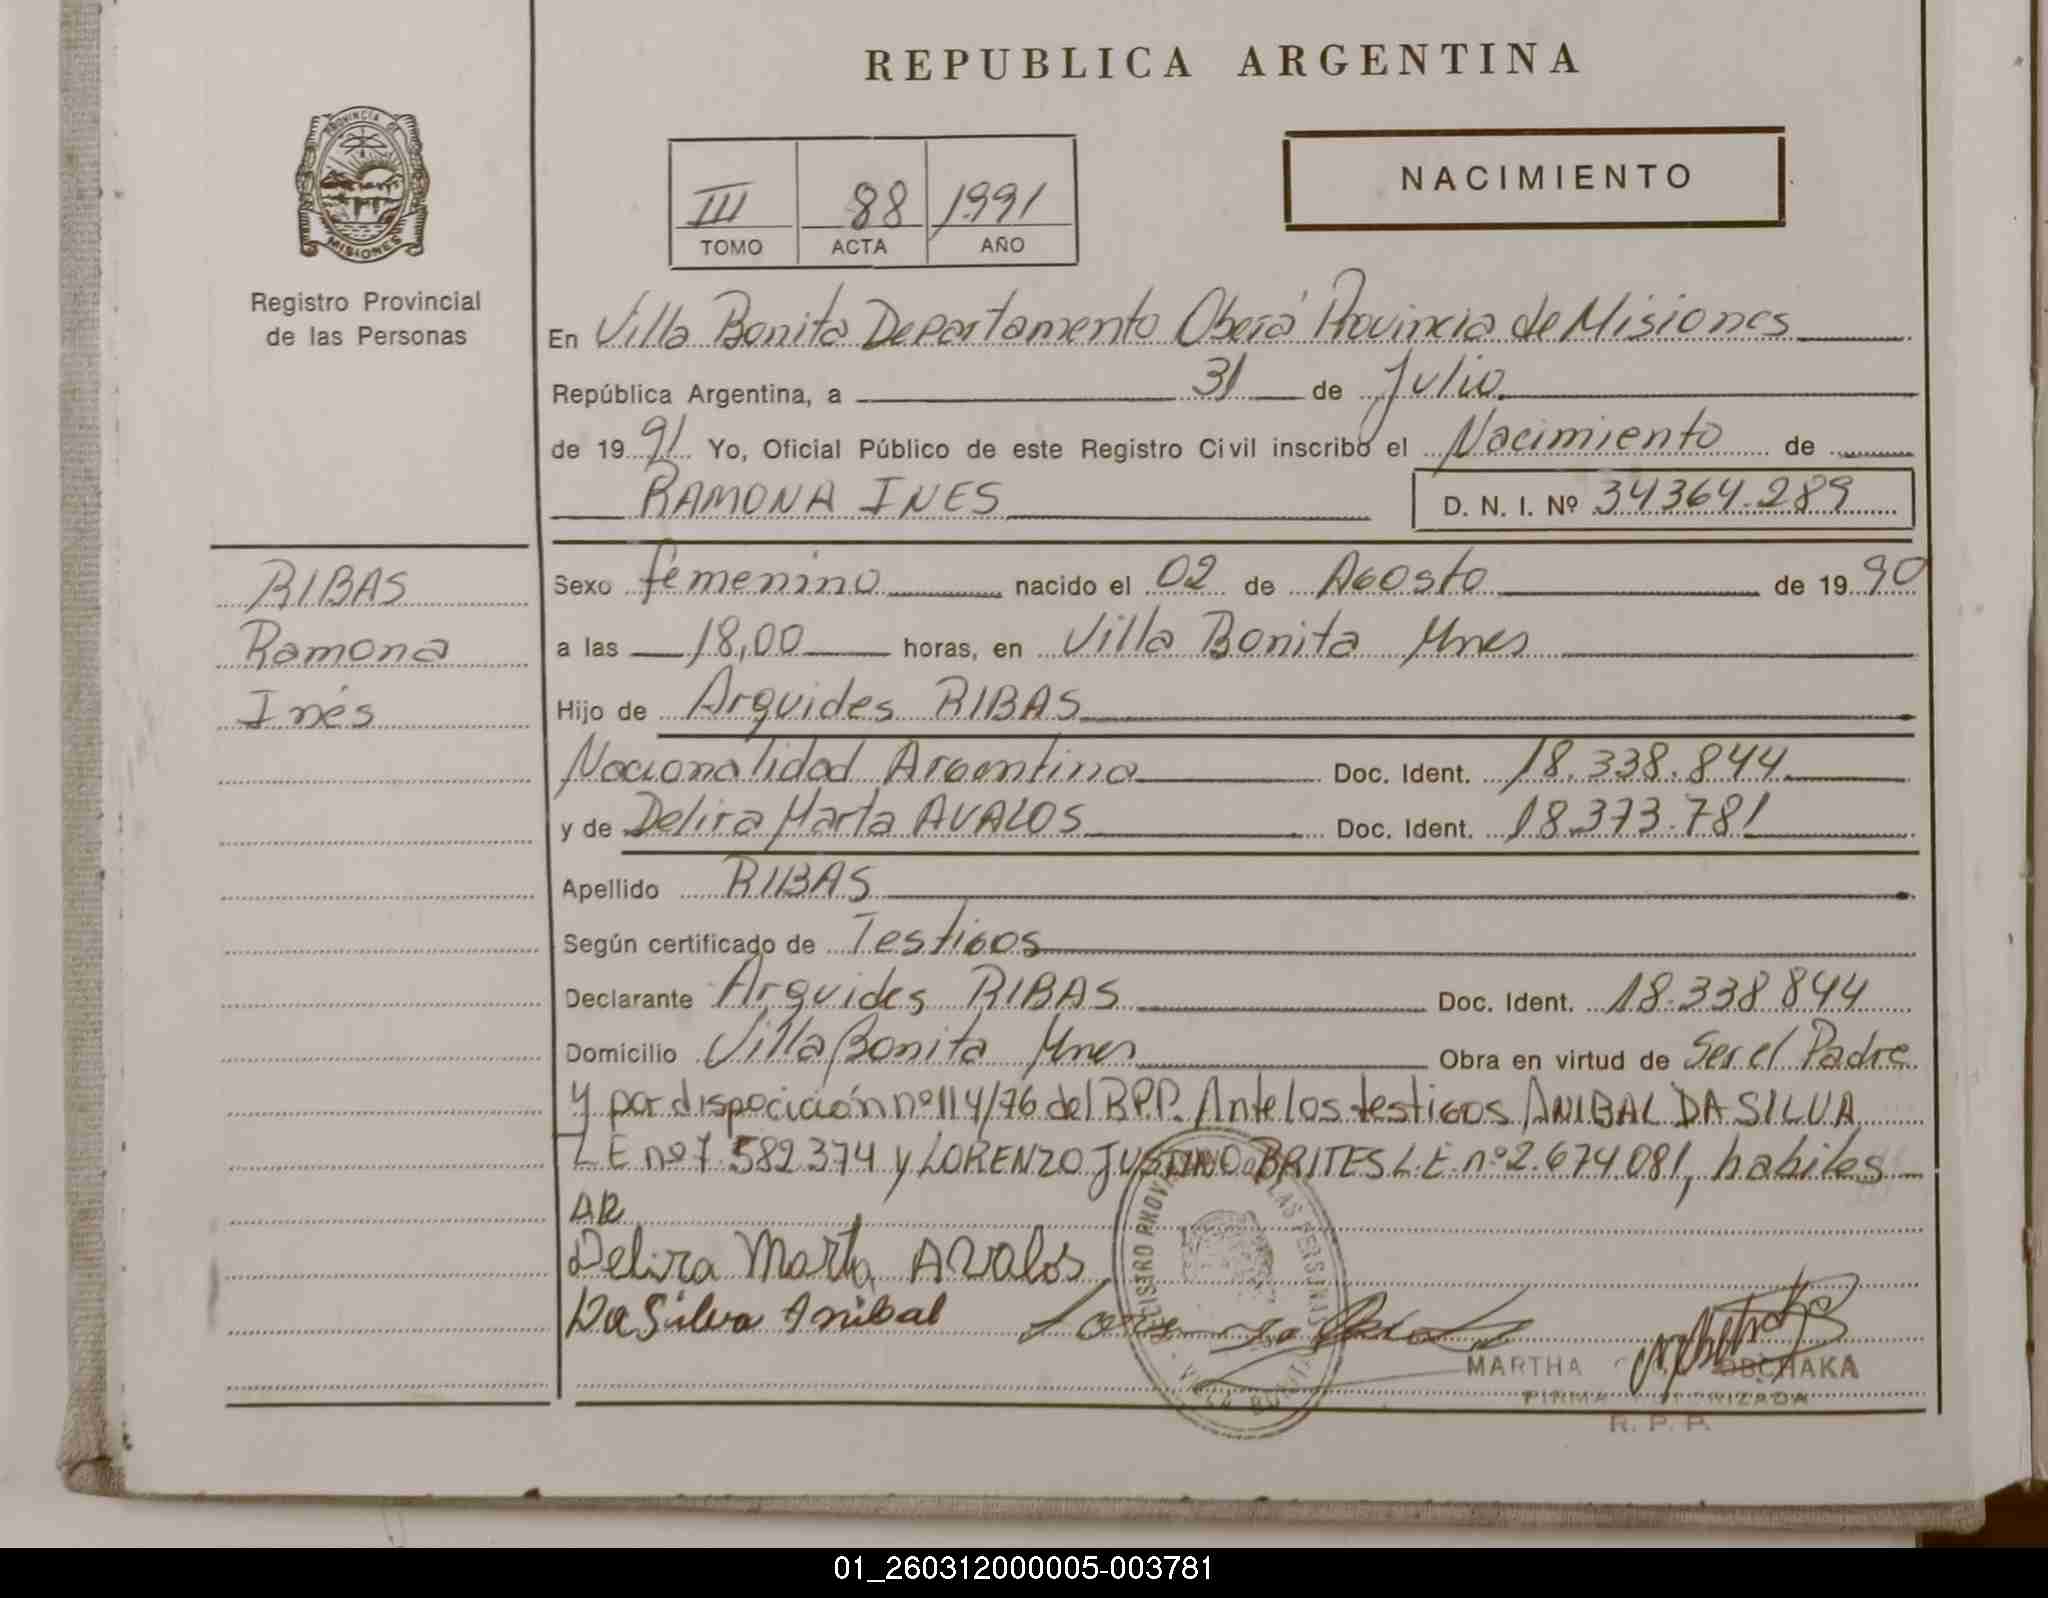 REPUBLICA ARGENTINA
PROVINCIA DE
MISIONES
Registro Provincial
de las Personas
III 88 1991
TOMO ACTA AÑO
NACIMIENTO
En Villa Bonita Departamento Oberá Provincia de Misiones
República Argentina, a 31 de Julio
de 1991 Yo, Oficial Público de este Registro Civil inscribo el Nacimiento de
RAMONA INES D. N. I. Nº 34364.289
RIBAS
Ramona
Inés
Sexo femenino nacido el 02 de Agosto de 1990
a las 18,00 horas, en Villa Bonita Mnes
Hijo de Arquides RIBAS
Nacionalidad Argentina Doc. Ident. 18.338.844
y de Delira Marta AVALOS Doc. Ident. 18373.781
Apellido RIBAS
Según certificado de Testigos
Declarante Arquides RIBAS Doc. Ident. 18.338844
Domicilio Villa Bonita Mnes Obra en virtud de Ser el Padre
y por dispocición nº 114/76 del R.P.P. Ante los testigos ANIBAL DA SILVA
L E nº 7.582374 y LORENZO JUSTINO BRITES L.E. nº 2.674.081, habiles
AR
Delira Marta Avalos
Da Silva Anibal
MARTHA OBCHAKA
R. P. P.
01_260312000005-003781